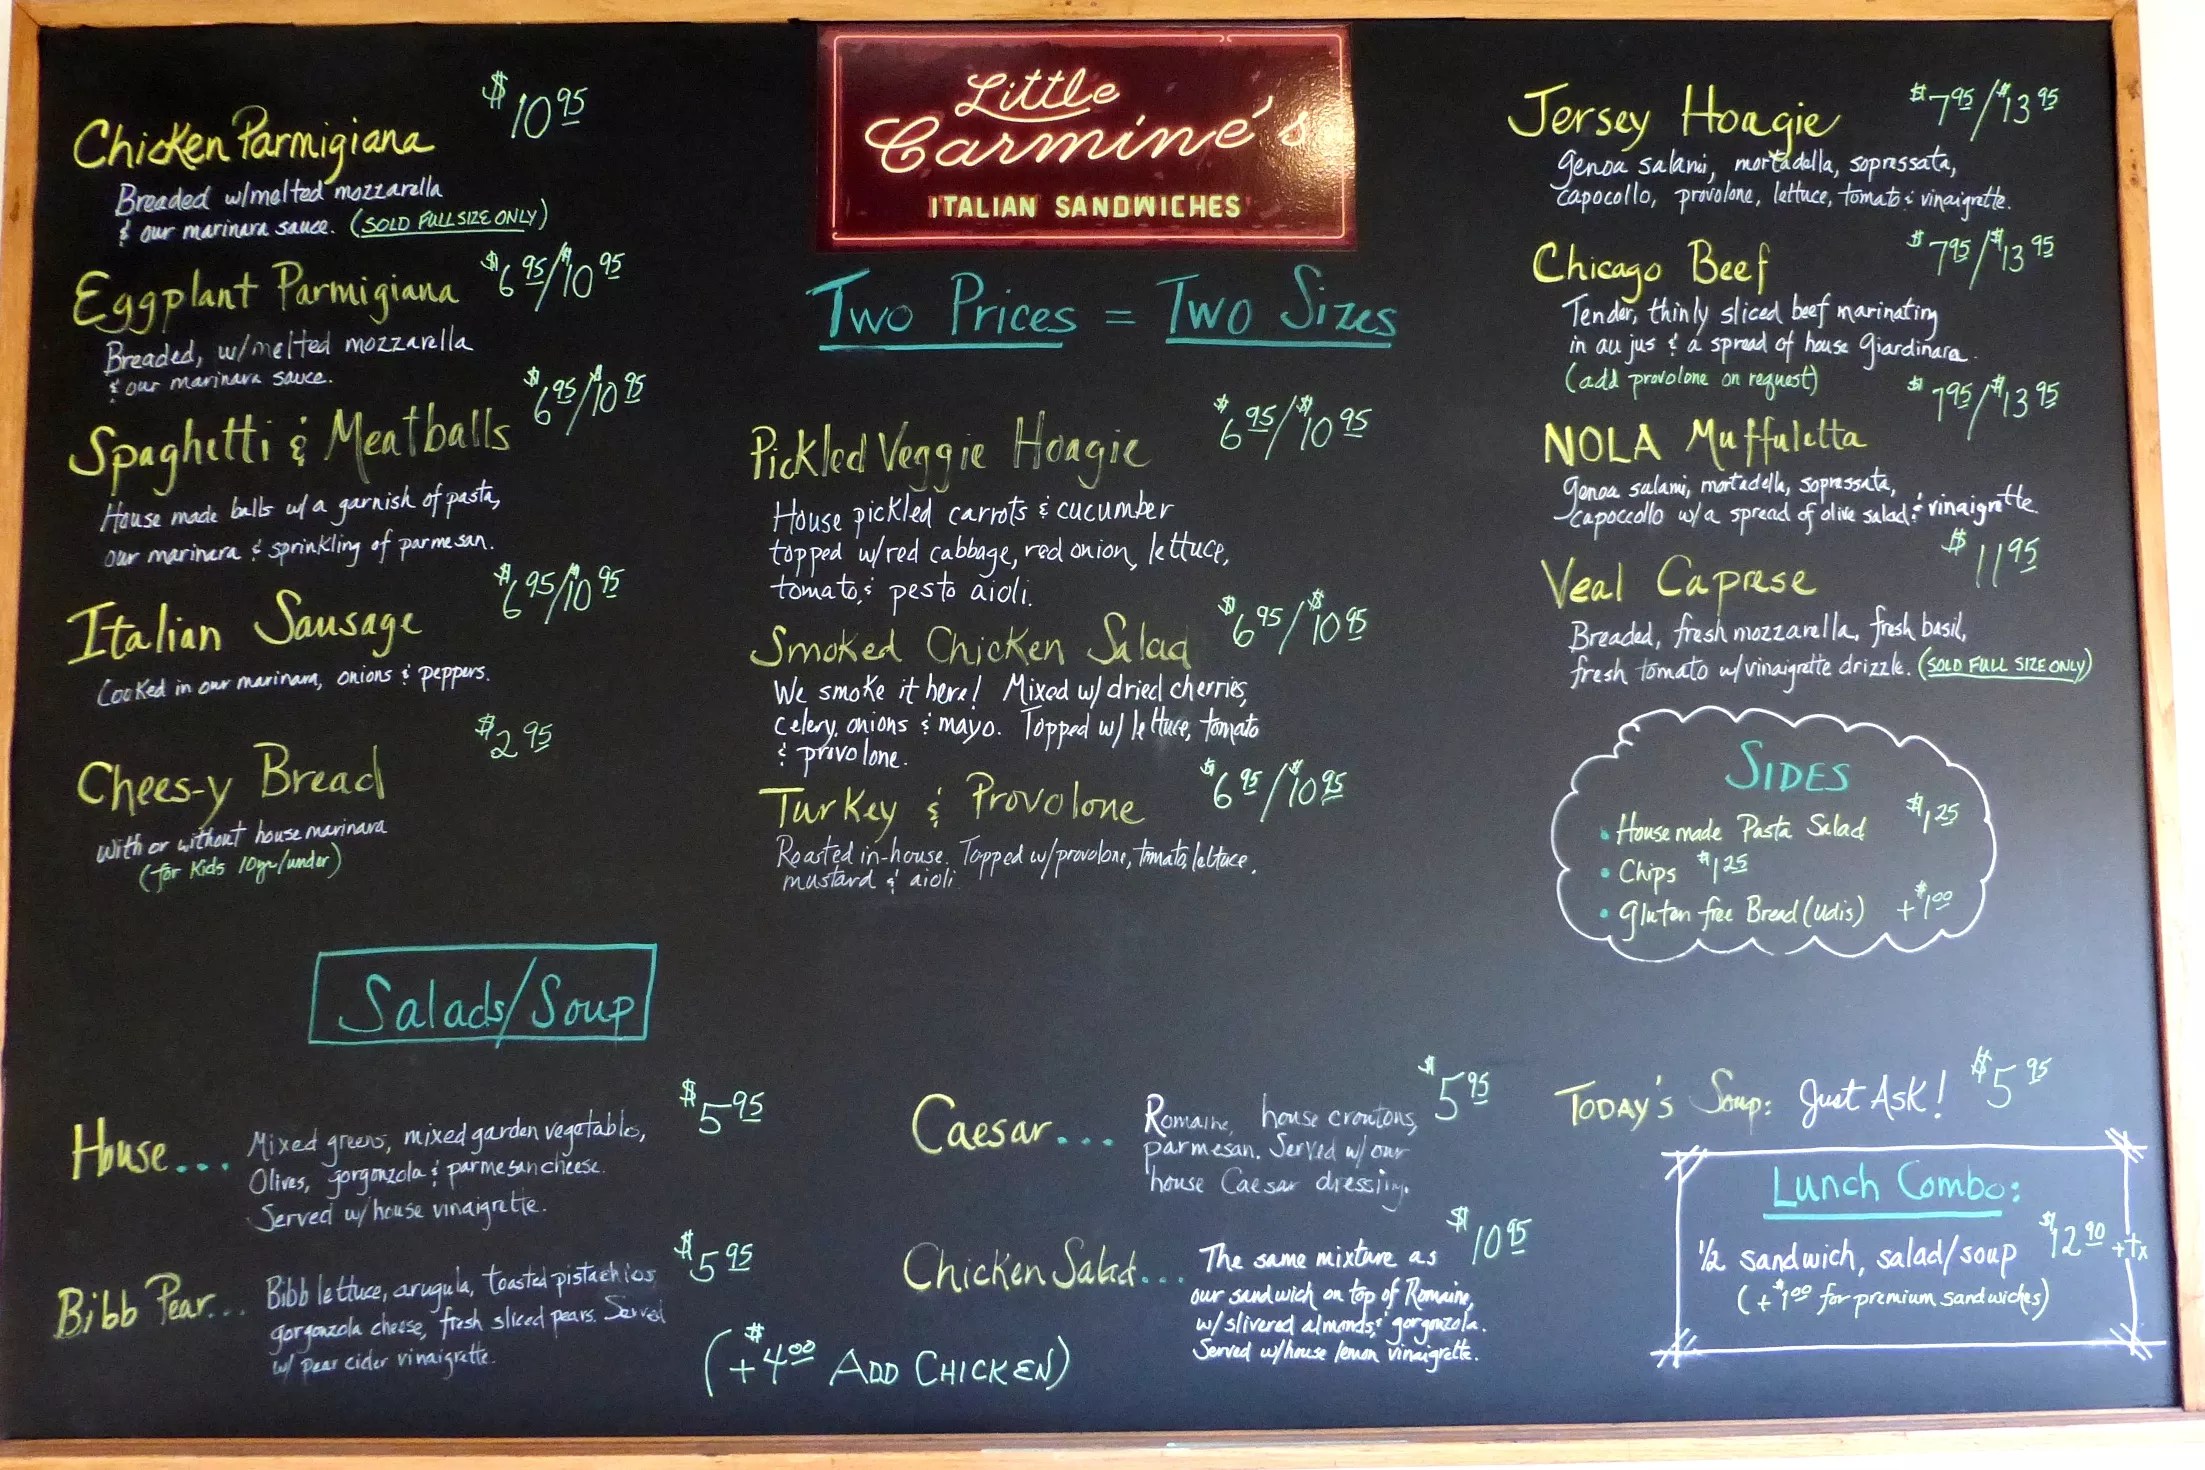 Little
Carmine's
ITALIAN SANDWICHES
Two Prices = Two Sizes
Chicken Parmigiana $10.95
Breaded w/melted mozzarella
& our marinara sauce. (SOLD FULL SIZE ONLY)
Eggplant Parmigiana $6.95/$10.95
Breaded, w/melted mozzarella
& our marinara sauce.
Spaghetti & Meatballs $6.95/$10.95
House made balls w/a garnish of pasta,
our marinara & sprinkling of parmesan.
Italian Sausage $6.95/$10.95
Cooked in our marinara, onions & peppers.
Chees-y Bread $2.95
with or without house marinara
(for Kids 10yr/under)
Pickled Veggie Hoagie $6.95/$10.95
House pickled carrots & cucumber
topped w/red cabbage, red onion, lettuce,
tomato, & pesto aioli.
Smoked Chicken Salad $6.95/$10.95
We smoke it here! Mixed w/ dried cherries,
celery, onions & mayo. Topped w/ lettuce, tomato
& provolone.
Turkey & Provolone $6.95/$10.95
Roasted in-house. Topped w/provolone, tomato, lettuce,
mustard & aioli
Jersey Hoagie $7.95/$13.95
Genoa salami, mortadella, sopressata,
capocollo, provolone, lettuce, tomato & vinaigrette.
Chicago Beef $7.95/$13.95
Tender, thinly sliced beef marinating
in au jus & a spread of house Giardinara.
(add provolone on request)
NOLA Muffuletta $7.95/$13.95
Genoa salami, mortadella, sopressata,
capoccollo w/a spread of olive salad & vinaigrette.
Veal Caprese $11.95
Breaded, fresh mozzarella, fresh basil,
fresh tomato w/vinaigrette drizzle. (SOLD FULL SIZE ONLY)
SIDES
• House made Pasta Salad $1.25
• Chips $1.25
• Gluten free Bread (Udis) +$1.00
Salads/Soup
House... Mixed greens, mixed garden vegetables, $5.95
Olives, gorgonzola & parmesan cheese.
Served w/ house vinaigrette.
Bibb Pear... Bibb lettuce, arugula, toasted pistachios $5.95
gorgonzola cheese, fresh sliced pears. Served
w/ pear cider vinaigrette.
(+$4.00 ADD CHICKEN)
Caesar... Romaine, house croutons, $5.95
parmesan. Served w/ our
house Caesar dressing.
Chicken Salad... The same mixture as $10.95
our sandwich on top of Romaine,
w/ slivered almonds, & gorgonzola.
Served w/house lemon vinaigrette.
TODAY'S Soup: Just Ask! $5.95
Lunch Combo:
1/2 sandwich, salad/soup $12.90 +tx
(+$1.00 for premium sandwiches)